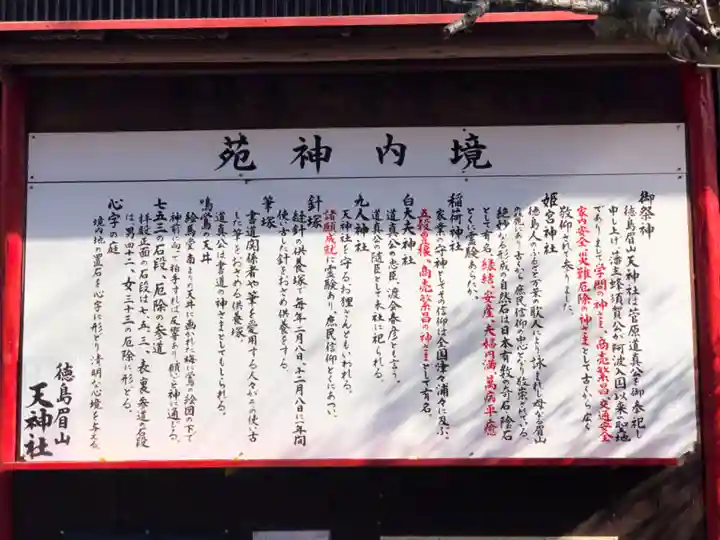 境内神苑
御祭神
徳島眉山天神社は菅原道真公を御奉祀し
申し上げ、藩主蜂須賀公が阿波入国以来の聖地
でありまして、学問の神さま、商売繁昌、交通安全
家内安全、災難厄除の神さまとして古くから広く
敬仰されて参りました。
姫宮神社
徳島人のふるさと万葉の歌人によって詠まれし母なる眉山
絶妙なる形成の自然石は日本有数の奇石陰石
として有名、縁結、安産、夫婦円満、萬病平癒
として霊験あらたか。
稲荷神社
家業の守神としてその信仰は全国津々浦々に及ぶ、
五穀豊穣、商売繁昌の神さまとして有名。
白太夫神社
道真公の忠臣、渡会春彦とも言う。
道真公の随臣として末社に祀られる。
九人神社
天神社を守るお狸さんともいわれる。
諸願成就に霊験あり、庶民信仰とくにあつい。
針塚
縫針の供養塚で毎年二月八日、十二月八日に一年間
使い古した針をおさめ供養をする。
筆塚
書道関係者や筆を愛用する人々がこの使い古
した筆をおさめる供養塚。
鳴鴬の天井
道真公は書道の神さまとしてもしられる。
絵馬堂南よりの天井に画かれた梅に鴬の絵図の下で
神前に向って拍手すれば反響あり、願いごと神に通じる。
七五三の石段、厄除の参道
拝殿正面の石段は七、五、三、表、裏参道の石段
は男四十二、女三十三の厄除に形どる。
心字の庭
境内地の置石を心字に形どり清明な心境を与える
徳島眉山
天神社